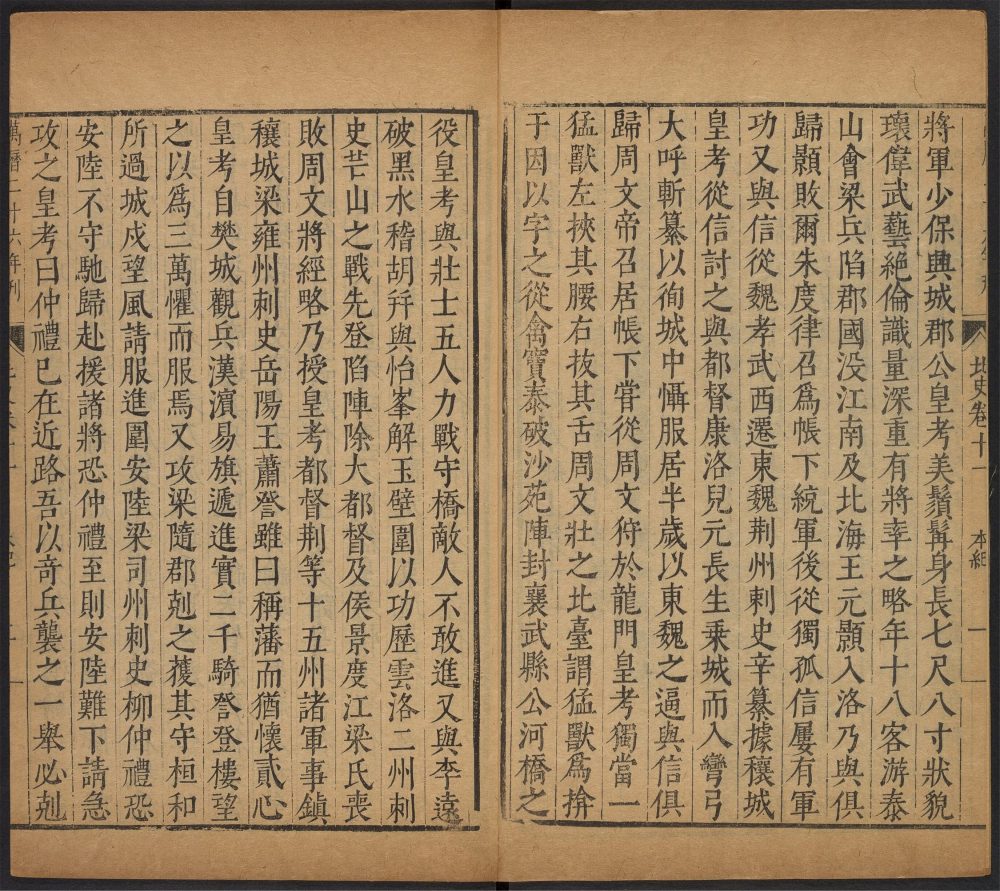 北史卷十一
本紀
一
將軍少保興城郡公皇考美鬚髯身長七尺八寸狀貌
瓌偉武藝絕倫識量深重有將率之略年十八客游泰
山會梁兵陷郡國没江南及北海王元顥入洛乃與俱
歸顥敗爾朱度律召爲帳下統軍後從獨孤信屢有軍
功又與信從魏孝武西遷東魏荆州刺史辛纂據穰城
皇考從信討之與都督康洛兒元長生乗城而入彎弓
大呼斬纂以徇城中懾服居半歲以東魏之逼與信俱
歸周文帝召居帳下甞從周文狩於龍門皇考獨當一
猛獸左挾其腰右抜其舌周文壯之北臺謂猛獸爲揜
于因以字之從禽竇泰破沙苑陣封襄武縣公河橋之
役皇考與壯士五人力戰守橋敵人不敢進又與李遠
破黑水稽胡并與怡峯解玉壁圍以功歷雲洛二州刺
史芒山之戰先登陷陣除大都督及侯景度江梁氏喪
敗周文將經略乃授皇考都督荆等十五州諸軍事鎮
穰城梁雍州刺史岳陽王蕭詧雖曰稱藩而猶懷貳心
皇考自樊城觀兵漢濵易旗遞進實二千騎詧登樓望
之以爲三萬懼而服焉又攻梁隨郡剋之獲其守桓和
所過城戍望風請服進圍安陸梁司州刺史柳仲禮恐
安陸不守馳歸赴援諸將恐仲禮至則安陸難下請急
攻之皇考曰仲禮已在近路吾以奇兵襲之一舉必剋
萬曆二十六年刊